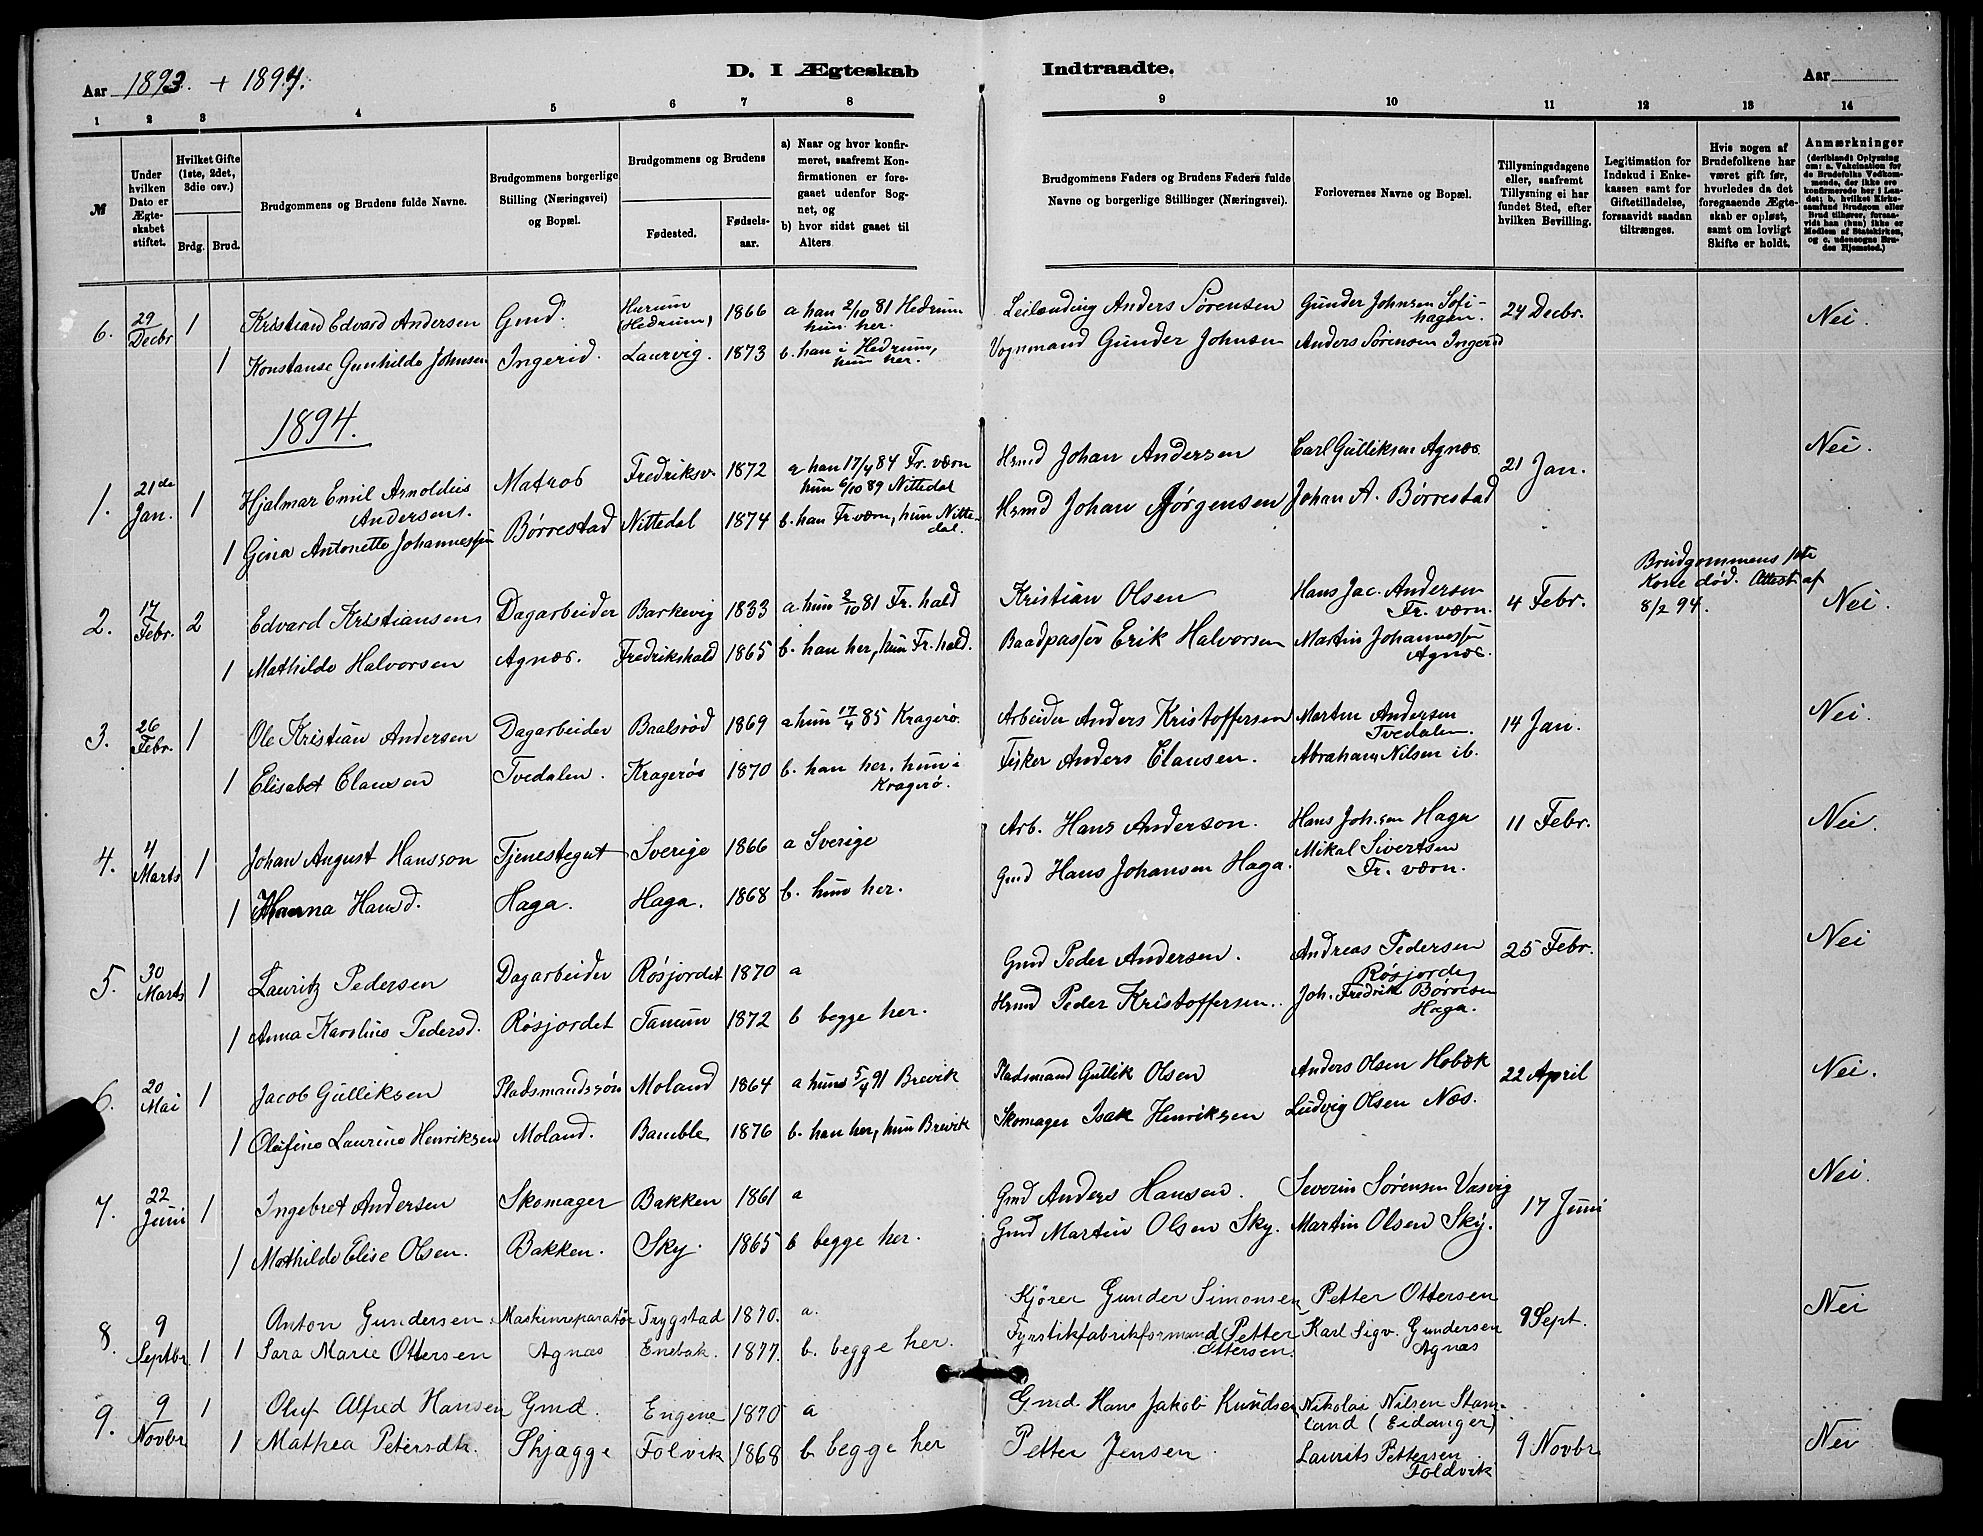 Aar 1893. + 1894.
D. I Ægteskab Indtraadte.
Aar
1 2 3 4 5 6 7 8 9 10 11 12 13 14
№
Under hvilken Dato er Ægteskabet stiftet.
Hvilket Gifte (1ste, 2det, 3die osv.)
Brdg. Brud.
Brudgommens og Brudens fulde Navne.
Brudgommens borgerlige Stilling (Næringsvei) og Bopæl.
Brudgommens og Brudens
Fødested. Fødselsaar.
a) Naar og hvor konfirmeret, saafremt Konfirmationen er foregaaet udenfor Sognet, og
b) hvor sidst gaaet til Alters.
Brudgommens Faders og Brudens Faders fulde Navne og borgerlige Stillinger (Næringsvei).
Forlovernes Navne og Bopæl.
Tillysningsdagene eller, saafremt Tillysning ei har fundet Sted, efter hvilken Bevilling.
Legitimation for Indskud i Enkekassen samt for Giftetilladelse, forsaavidt saadan tiltrænges.
Hvis nogen af Brudefolkene har været gift før, hvorledes da det foregaaende Ægteskab er opløst, samt om lovligt Skifte er holdt.
Anmærkninger (deriblandt Oplysning om: a. Vakcination for de Brudefolks Vedkommende, der ikke ere konfirmerede her i Landet; b. hvilket Kirkesamfund Brudgom eller Brud tilhører, forsaavidt han (hun) ikke er Medlem af Statskirken, og c. udensogns Brudes Hjemsted.)
6. 29 Decbr 1 Kristian Edvard Andersen Gmd. Hurum (Hedrum) 1866 a han 2/10 81 Hedrum hun her. Leilænding Anders Sørensen Gunder Johnsen Sofihagen. 24 Decbr. Nei.
1 Konstanse Gunhilde Johnsen Ingerid. Laurvig. 1873 b. han i Hedrum, hun her. Vognmand Gunder Johnsen Anders Sørensen Ingerid
1894.
1. 21de Jan. 1 Hjalmar Emil Arnoldus Andersen. Matros Fredriksv. 1872 a han 17/4 84 Fr. værn hun 6/10 89 Nittedal Hsmd Johan Andersen Carl Gulliksen Agnæs. 21 Jan. Nei.
1 Gina Antonette Johannessen Børrestad Nittedal 1874 b. han Fr værn, hun Nittedal. Hsmd Johan Jørgensen Johan A. Børrestad
2. 17 Febr. 2 Edvard Kristiansen Dagarbeider Barkevig 1833 a hun 2/10 81 Fr. hald Kristian Olsen Hans Jac. Andersen Fr. værn. 4 Febr. Brudgommens 1ste Kone død. Attest af 8/2 94. Nei.
1 Mathilde Halvorsen Agnæs. Fredrikshald 1865 b. han her, hun Fr. hald. Baadpasser Erik Halvorsen Martin Johannessen Agnæs.
3. 26 Febr. 1 Ole Kristian Andersen Dagarbeider Baalsrød 1869 a hun 17/4 85 Kragerø. Arbeider Anders Kristoffersen Martin Andersen Tvedalen. 14 Jan. Nei.
1 Elisabet Clausen Tvedalen. Kragerøs 1870 b. han her, hun i Kragerø. Fisker Anders Clausen. Abraham Nilsen ib.
4. 4 Marts 1 Johan August Hansson Tjenestegut Sverige 1866 a Sverige Arb. Hans Anderson. Hans Joh.sen Haga 11 Febr. Nei.
1 Hanna Hansd. Haga. Haga. 1868 b. hun her. Gmd Hans Johansen Haga. Mikal Sivertsen Fr. værn.
5. 30 Marts 1 Lauritz Pedersen Dagarbeider Røsjordet 1870 a Gmd Peder Andersen. Andreas Pedersen Røsjordet 25 Febr. Nei
1 Anna Karoline Pedersd. Røsjordet Tanum 1872 b begge her. Hsmd Peder Kristoffersen. Joh. Fredrik Børresen Haga.
6. 20 Mai 1 Jacob Gulliksen Pladsmandssøn Moland 1864 a hun 5/4 91 Brevik Pladsmand Gullik Olsen Anders Olsen Hobæk 22 April Nei.
1 Olufine Laurine Henriksen Moland. Bamble 1876 b. han her, hun Brevik Skomager Isak Henriksen Ludvig Olsen Næs.
7. 22 Juni 1 Ingebret Andersen Skomager Bakken 1861 a Gmd Anders Hansen. Severin Sørensen Vasvig 17 Juni Nei.
1 Mathilde Elise Olsen. Bakken. Sky. 1865 b begge her. Gmd Martin Olsen Sky. Martin Olsen Sky.
8. 9 Septbr 1 Anton Gundersen. Maskinreparatør Trygstad 1870. a. Kjører Gunder Simonsen Petter Ottersen 9 Sept. Nei
1 Sara Marie Ottersen Agnæs Enebak. 1877. b. begge her. Fyrstikfabrikformand Petter Ottersen. Karl Sigv. Gundersen Agnæs
9. 9 Novbr 1 Oluf Alfred Hansen Gmd. Engene 1870 a Gmd Hans Jakob Kundsen Nikolai Nilsen Stamland (Eidanger) 9 Novbr Nei
1 Mathea Petersdtr. Skjagge Folvik 1868 b begge her Petter Jensen. Laurits Pettersen Foldvik